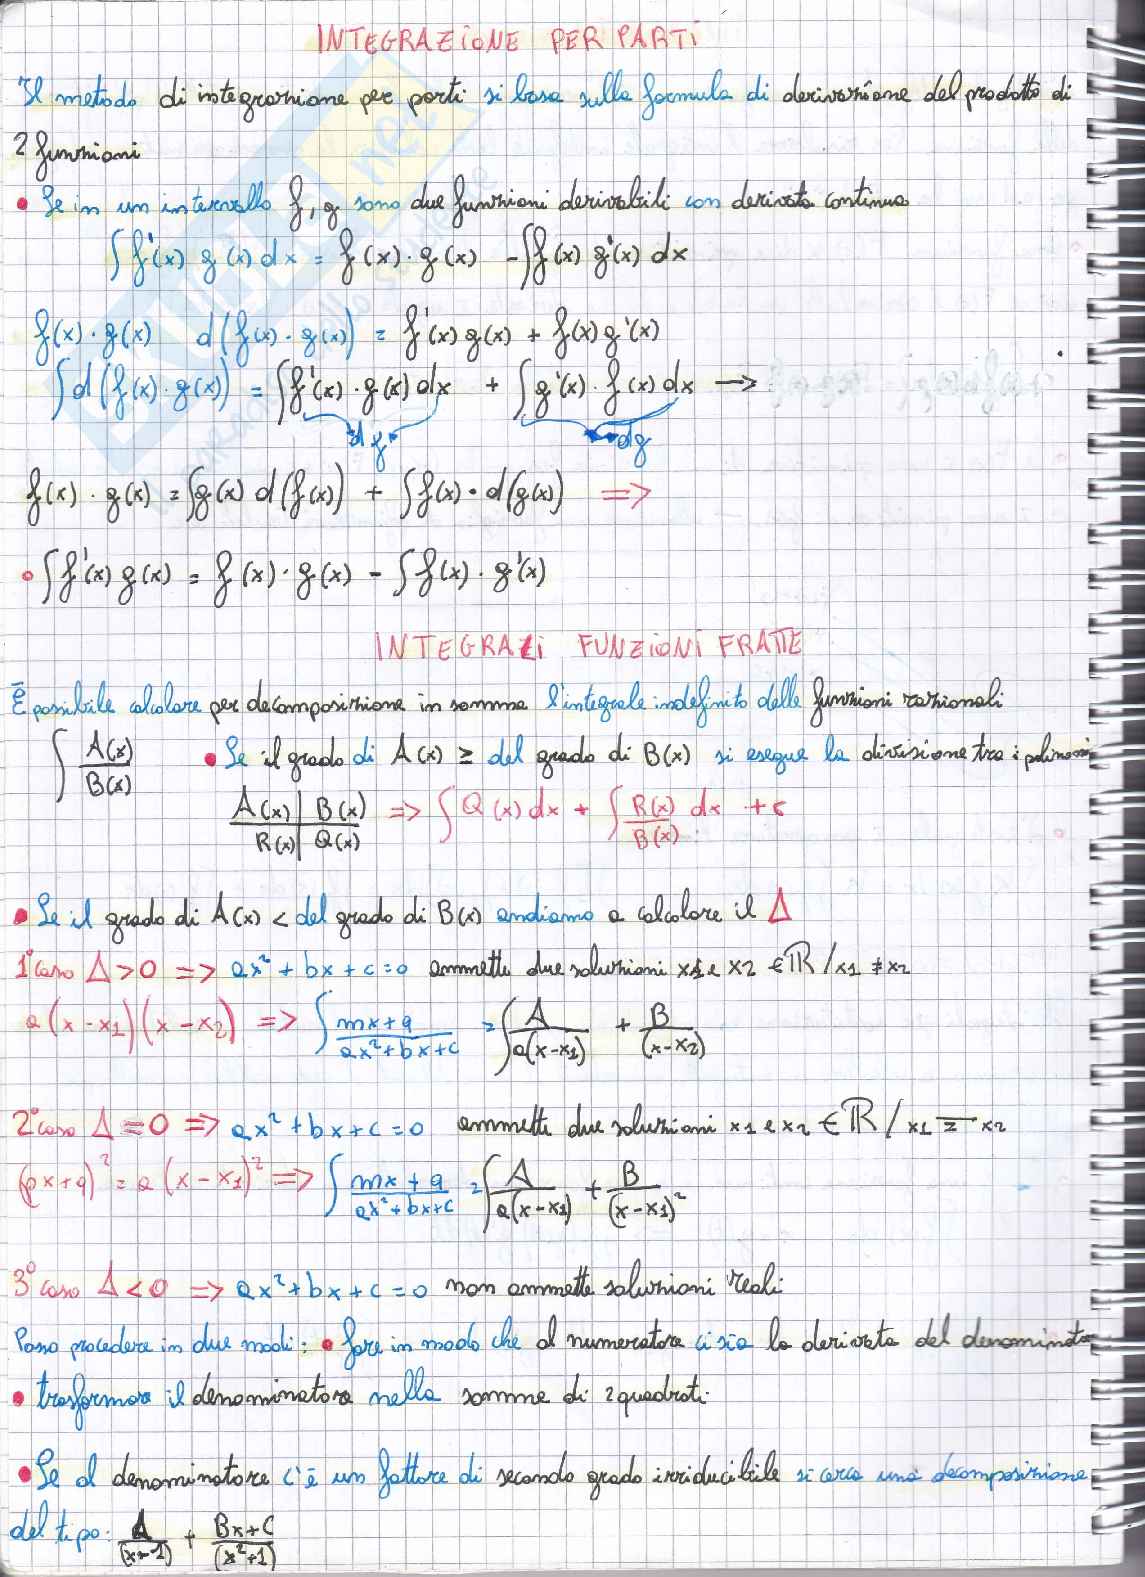 INTEGRAZIONE PER PARTI
Il metodo di integrazione per parti si basa sulla formula di derivazione del prodotto di
2 funzioni
• Se in un intervallo f, g sono due funzioni derivabili con derivata continua
∫ f'(x) g(x) dx = f(x) · g(x) - ∫ f(x) g'(x) dx
f(x) · g(x) d(f(x) · g(x)) = f'(x) g(x) + f(x) g'(x)
∫ d(f(x) · g(x)) = ∫ f'(x) · g(x) dx + ∫ g'(x) · f(x) dx →
df dg
f(x) · g(x) = ∫ g(x) d(f(x)) + ∫ f(x) · d(g(x)) =>
• ∫ f'(x) g(x) = f(x) · g(x) - ∫ f(x) · g'(x)
INTEGRALI FUNZIONI FRATTE
È possibile calcolare per decomposizione in somme l'integrale indefinito delle funzioni razionali
∫ A(x)/B(x) • Se il grado di A(x) ≥ del grado di B(x) si esegue la divisione tra i polinomi
A(x) | B(x) => ∫ Q(x) dx + ∫ R(x)/B(x) dx + c
R(x) | Q(x)
• Se il grado di A(x) < del grado di B(x) andiamo a calcolare il Δ
1° caso Δ > 0 => ax² + bx + c = 0 ammette due soluzioni x1 e x2 ∈ ℝ / x1 ≠ x2
a(x-x1)(x-x2) => ∫ mx+q/ax²+bx+c = ∫ A/a(x-x1) + B/(x-x2)
2° caso Δ = 0 => ax² + bx + c = 0 ammette due soluzioni x1 e x2 ∈ ℝ / x1 = x2
(px+q)² = a(x-x1)² => ∫ mx+q/ax²+bx+c = ∫ A/a(x-x1) + B/(x-x1)²
3° caso Δ < 0 => ax² + bx + c = 0 non ammette soluzioni reali
Posso procedere in due modi: • fare in modo che al numeratore ci sia la derivata del denominato
• trasformare il denominatore nella somma di 2 quadrati.
• Se al denominatore c'è un fattore di secondo grado irriducibile si cerca una decomposizione
del tipo: A/(x-1) + Bx+C/(x²+1)